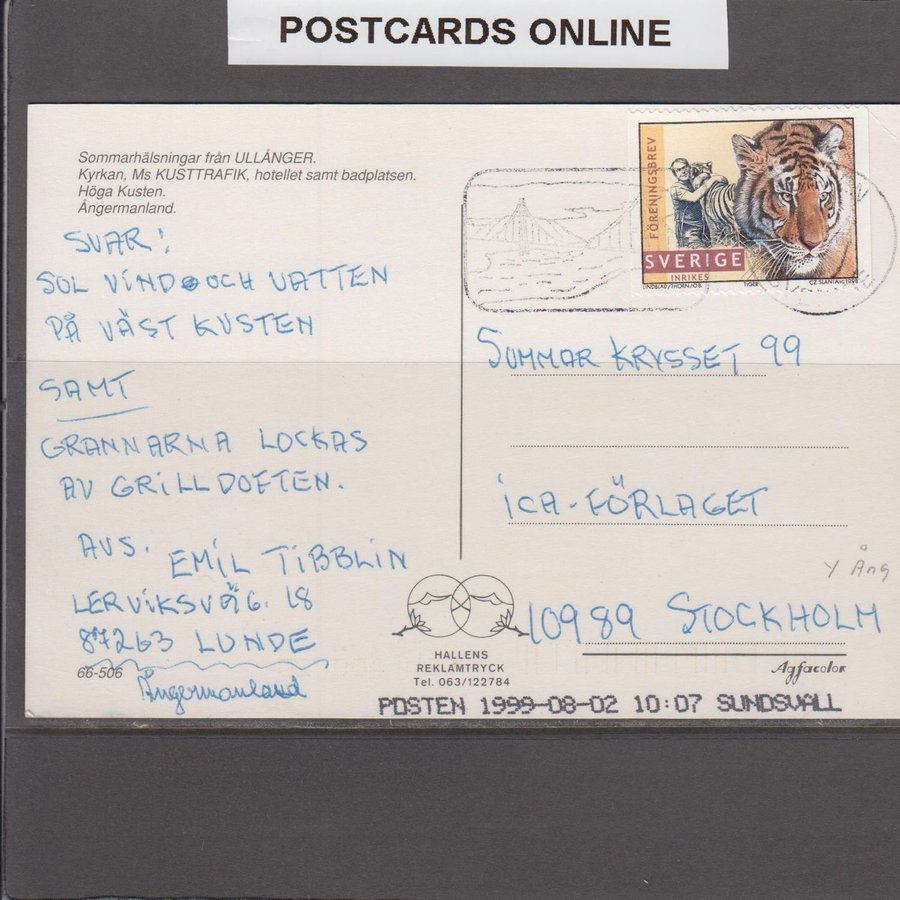 POSTCARDS ONLINE
Sommarhälsningar från ULLÅNGER.
Kyrkan, Ms KUSTTRAFIK, hotellet samt badplatsen.
Höga Kusten.
Ångermanland.
SVAR!
SOL VIND OCH VATTEN
PÅ VÄST KUSTEN
SAMT
GRANNARNA LOCKAS
AV GRILLDOFTEN.
AVS. EMIL TIBBLIN
LERVIKSVÄG. 18
87263 LUNDE
Ångermanland
66-506
FÖRENINGSBREV
SVERIGE
INRIKES
LINDBLAD/THORN/OB.
TIGER
CZ SLANIA SC 1998
SOMMAR KRYSSET 99
ICA-FÖRLAGET
Y Ång
10989 STOCKHOLM
HALLENS
REKLAMTRYCK
Tel. 063/122784
Agfacolor
POSTEN 1999-08-02 10:07 SUNDSVALL